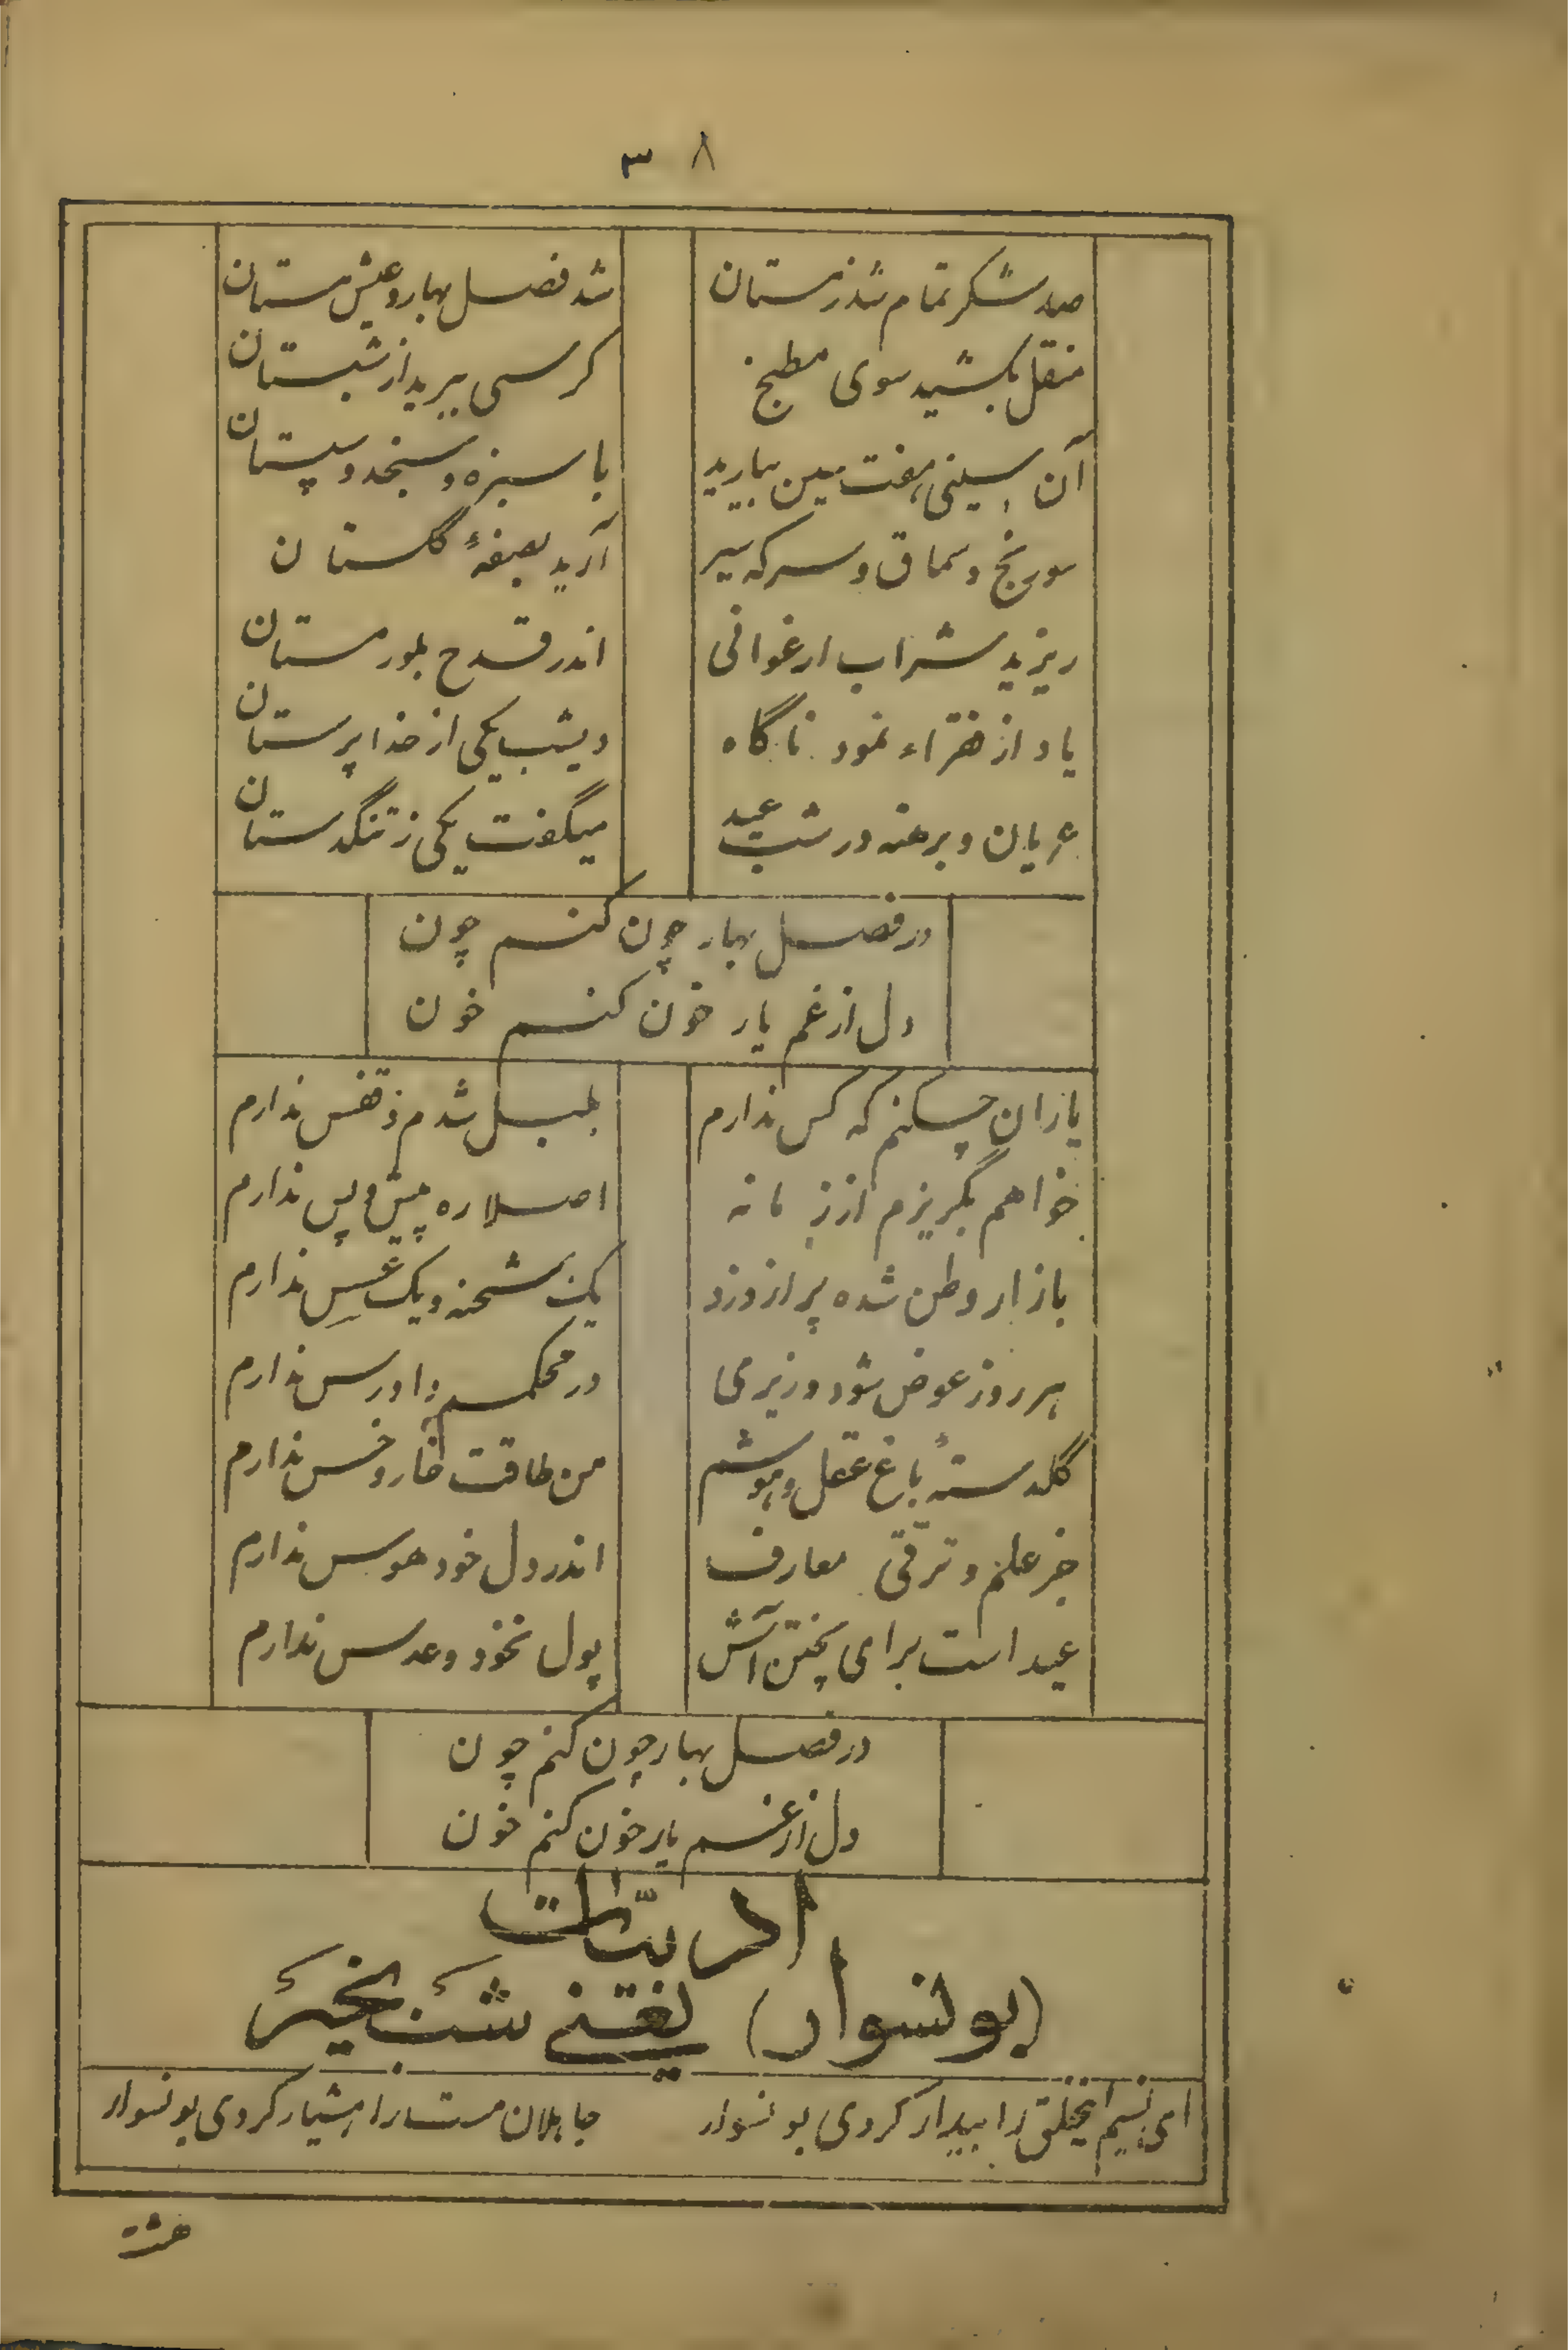 ۳۸
صد شکر تمام شد زمستان شد فصل بهار و عیش مستان
منقل بکشید سوی مطبخ کرسی ببرید از شبستان
آن سینی هفت سین بیارید با سبزه و سنجد و سپستان
سورنج و سماق و سرکه سیر آرید بصفهٔ گلستان
ریزید شراب ارغوانی اندر قدح بلور مستان
یاد از فقراء نمود ناگاه دیشب یکی از خدا پرستان
عریان و برهنه در شب عید میگفت یکی ز تنگدستان
در فصل بهار چون کنم چون
دل از غم یار خون کنم خون
یاران چکنم که کس ندارم بلبل شدم و قفس ندارم
خواهم بگریزم از زمانه اصلا ره پیش و پس ندارم
بازار وطن شده پر از دزد یک شحنه و یک عسس ندارم
هر روز عوض شود وزیرمی در محکمه دادرس ندارم
گلدستهٔ باغ عقل و هوشم من طاقت خار و خس ندارم
جز علم و ترقّی معارف اندر دل خود هوس ندارم
عید است برای پختن آش پول نخود و عدس ندارم
در فصل بهار چون کنم چون
دل از غم یار خون کنم خون
ادبیّات
(بونسوار) یعنی شب بخیر
ای نسیم اینخلق را بیدار کردی بونسوار جاهلان مست را هشیار کردی بونسوار
هشت